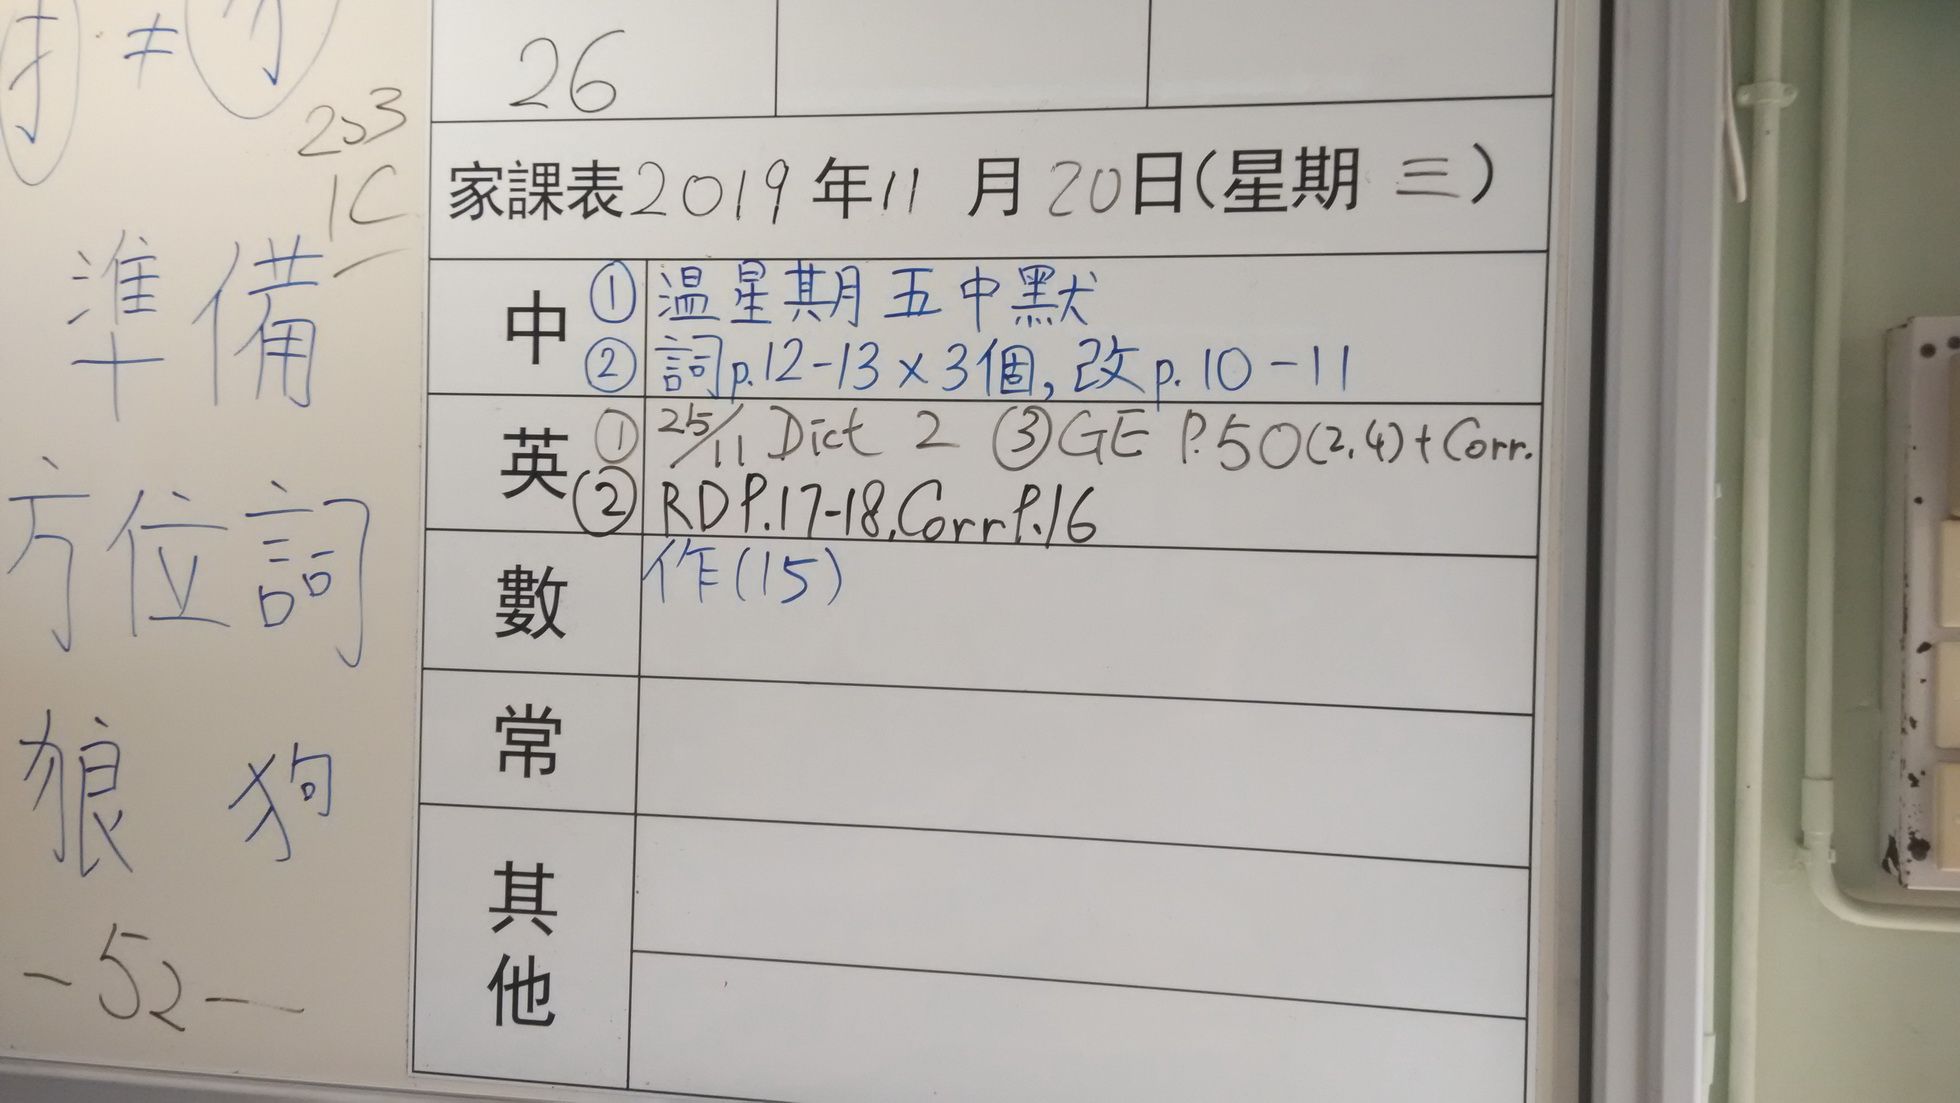 扌≠
203
1C
準備
方位詞
狼 狗
-52-
26
家課表2019年11月20日(星期三)
中 ① 温星期五中默
② 詞p.12-13×3個,改p.10-11
英 ① 25/11 Dict 2 ③ GE P.50(2,4)+Corr.
② RD P.17-18,Corr P.16
數 作(15)
常
其他